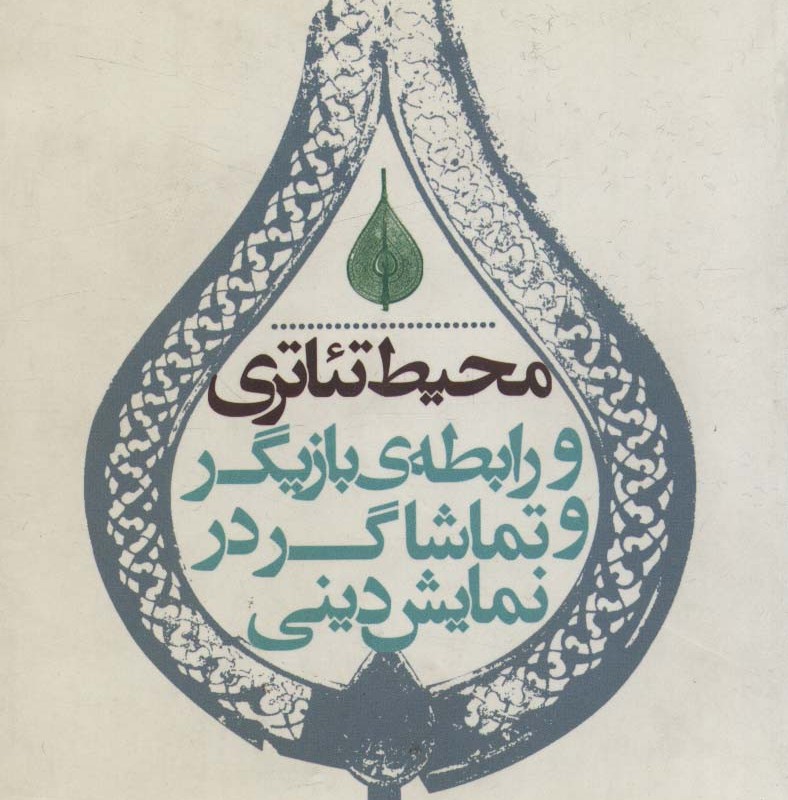 محیط تئاتری
و رابطه‌ی بازیگر
و تماشاگر در
نمایش دینی